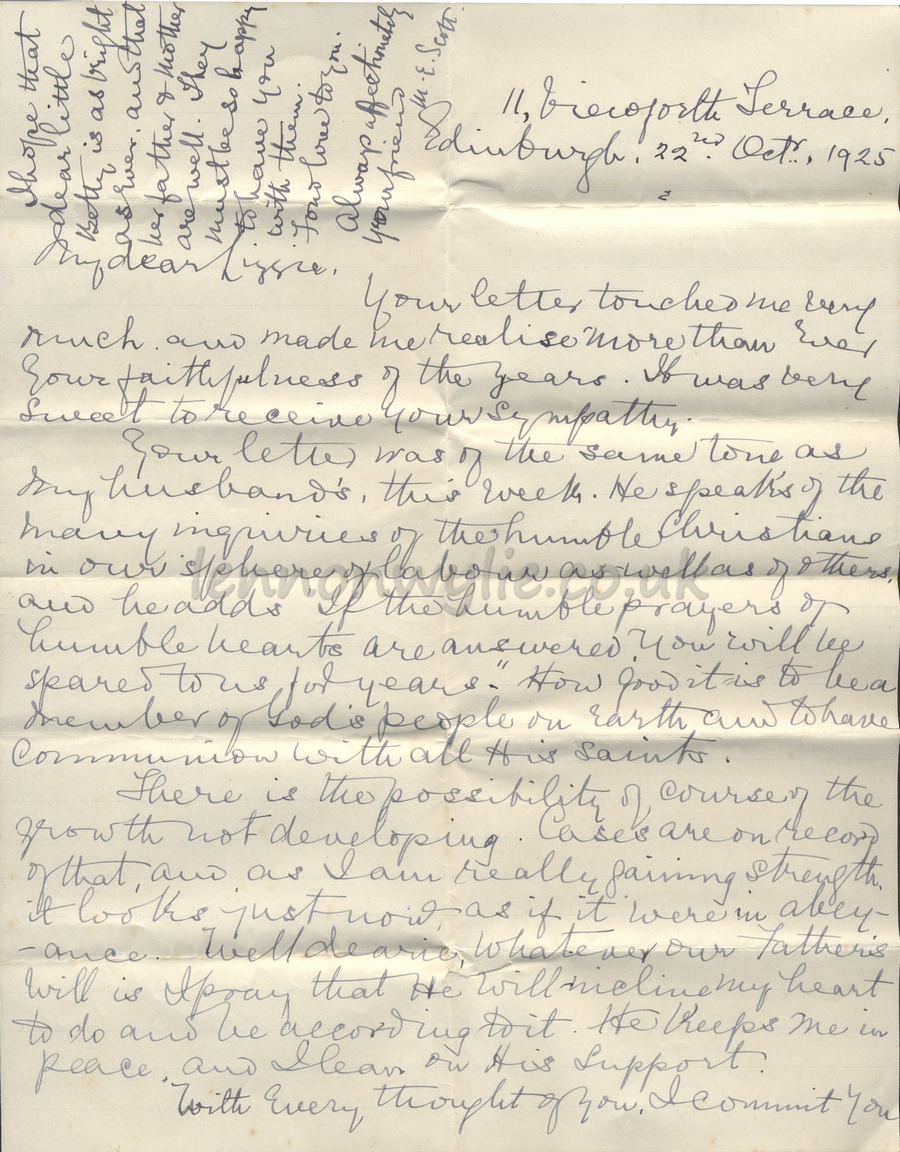 11, Viewforth Terrace,
Edinburgh, 22nd Octr., 1925
My dear Lizzie,
Your letter touched me very
much and made me realise more than ever
your faithfulness of the years. It was very
sweet to receive your sympathy.
Your letter was of the same tone as
my husband's, this week. He speaks of the
many inquiries of the humble Christians
in our sphere of labour as well as of others,
and he adds "If the humble prayers of
humble hearts are answered, you will be
spared to us for years." How good it is to be a
member of God's people on earth and to have
communion with all His saints.
There is the possibility of course of the
growth not developing. Cases are on record
of that, and as I am really gaining strength,
it looks just now, as if it were in abey-
-ance. Well dearie, whatever our Father's
will is I pray that He will incline my heart
to do and be according to it. He keeps me in
peace, and I lean on His support.
With every thought of you, I commit you
I hope that
dear little
Betty is as bright
as ever, and that
her father & mother
are well. They
must be so happy
to have you
with them.
Fond love to you.
Always affectionately
your friend
M. E. Scott.
lennonwylie.co.uk